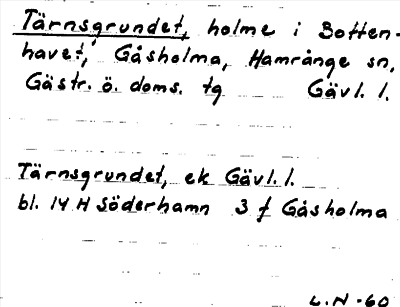 Tärnsgrundet, holme i Botten-
havet, Gåsholma, Hamrånge sn,
Gästr. ö. doms. tg Gävl. l.
Tärnsgrundet, ek Gävl. l.
bl. 14 H Söderhamn 3 f Gåsholma
L.N -60